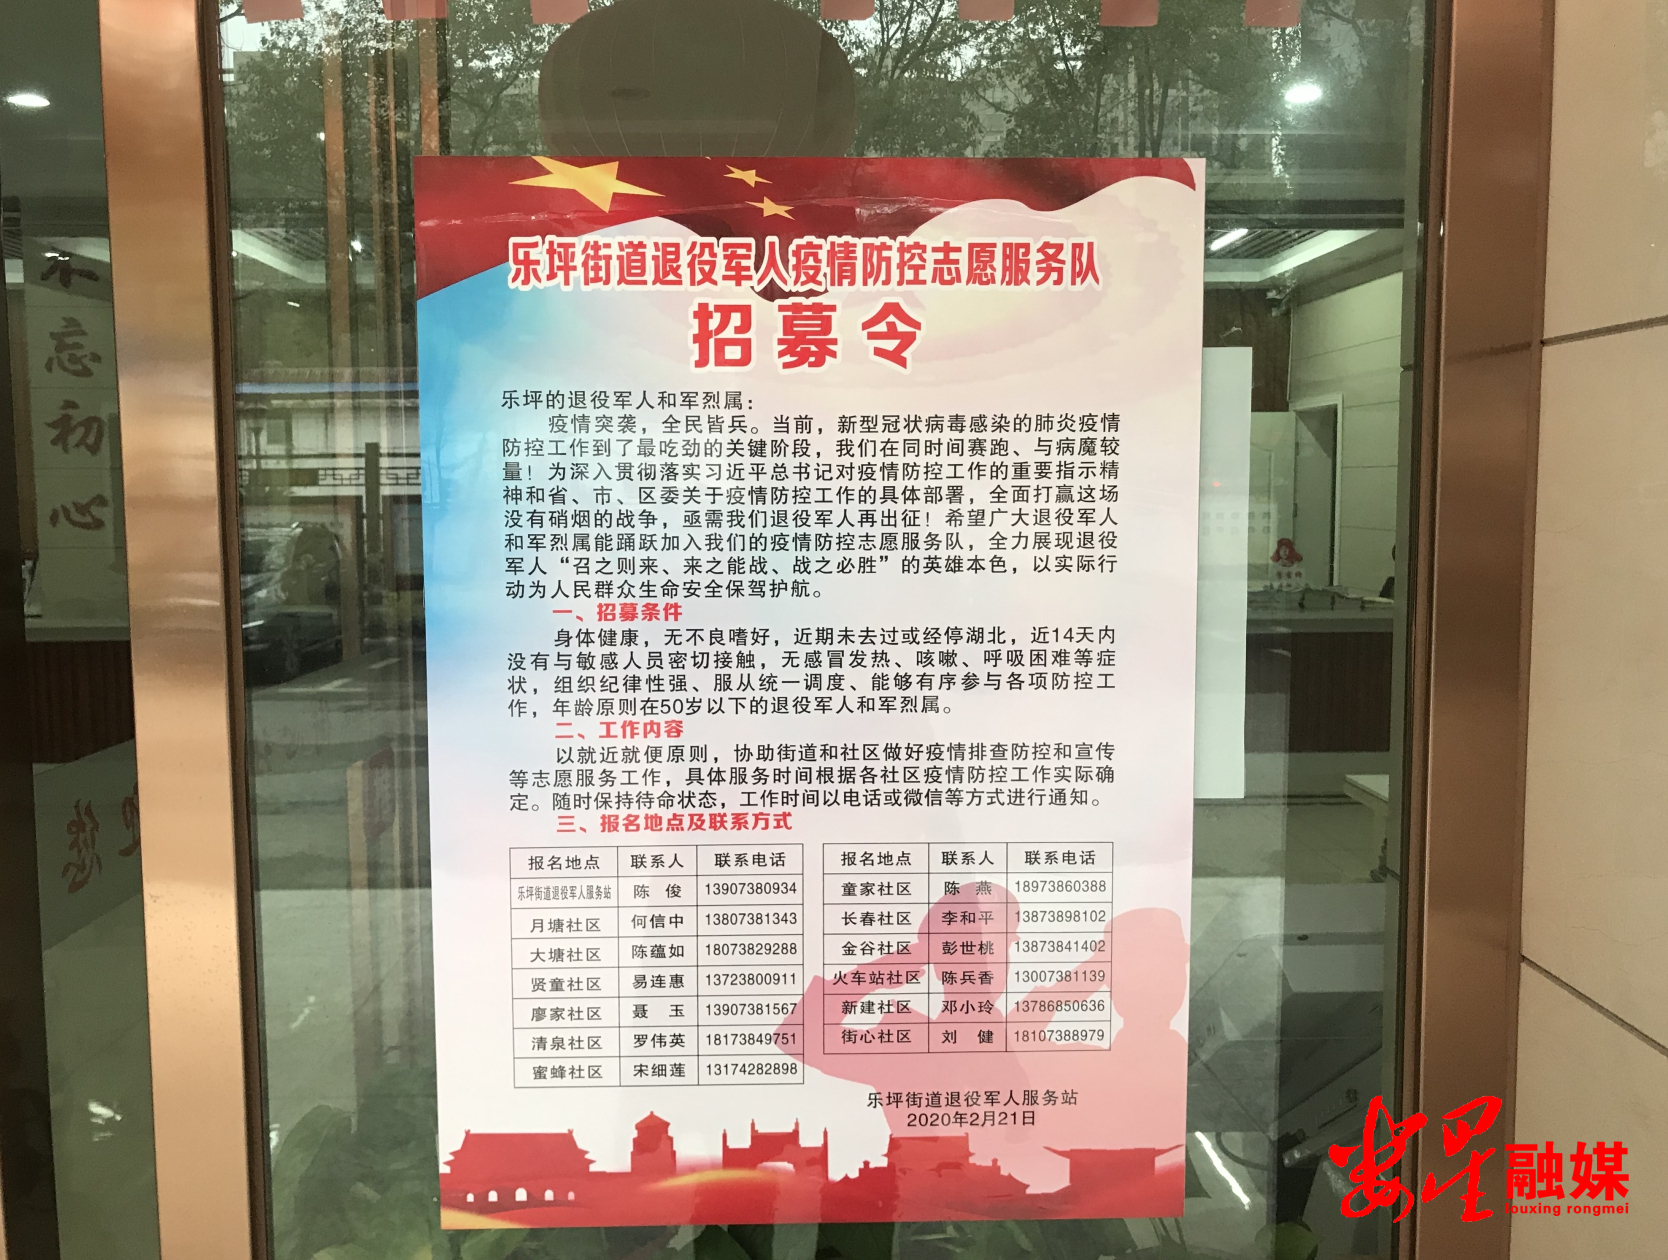 乐坪街道退役军人疫情防控志愿服务队
招募令
乐坪的退役军人和军烈属：
疫情突袭，全民皆兵。当前，新型冠状病毒感染的肺炎疫情
防控工作到了最吃劲的关键阶段，我们在同时间赛跑、与病魔较
量！为深入贯彻落实习近平总书记对疫情防控工作的重要指示精
神和省、市、区委关于疫情防控工作的具体部署，全面打赢这场
没有硝烟的战争，亟需我们退役军人再出征！希望广大退役军人
和军烈属能踊跃加入我们的疫情防控志愿服务队，全力展现退役
军人“召之则来、来之能战、战之必胜”的英雄本色，以实际行
动为人民群众生命安全保驾护航。
一、招募条件
身体健康，无不良嗜好，近期未去过或经停湖北，近14天内
没有与敏感人员密切接触，无感冒发热、咳嗽、呼吸困难等症
状，组织纪律性强、服从统一调度、能够有序参与各项防控工
作，年龄原则在50岁以下的退役军人和军烈属。
二、工作内容
以就近就便原则，协助街道和社区做好疫情排查防控和宣传
等志愿服务工作，具体服务时间根据各社区疫情防控工作实际确
定。随时保持待命状态，工作时间以电话或微信等方式进行通知。
三、报名地点及联系方式
报名地点 联系人 联系电话
乐坪街道退役军人服务站 陈 俊 13907380934
月塘社区 何信中 13807381343
大塘社区 陈蕴如 18073829288
贤童社区 易连惠 13723800911
廖家社区 聂 玉 13907381567
清泉社区 罗伟英 18173849751
蜜蜂社区 宋细莲 13174282898
报名地点 联系人 联系电话
童家社区 陈 燕 18973860388
长春社区 李和平 13873898102
金谷社区 彭世桃 13873841402
火车站社区 陈兵香 13007381139
新建社区 邓小玲 13786850636
街心社区 刘 健 18107388979
乐坪街道退役军人服务站
2020年2月21日
不忘初心
娄星融媒
louxing rongmei